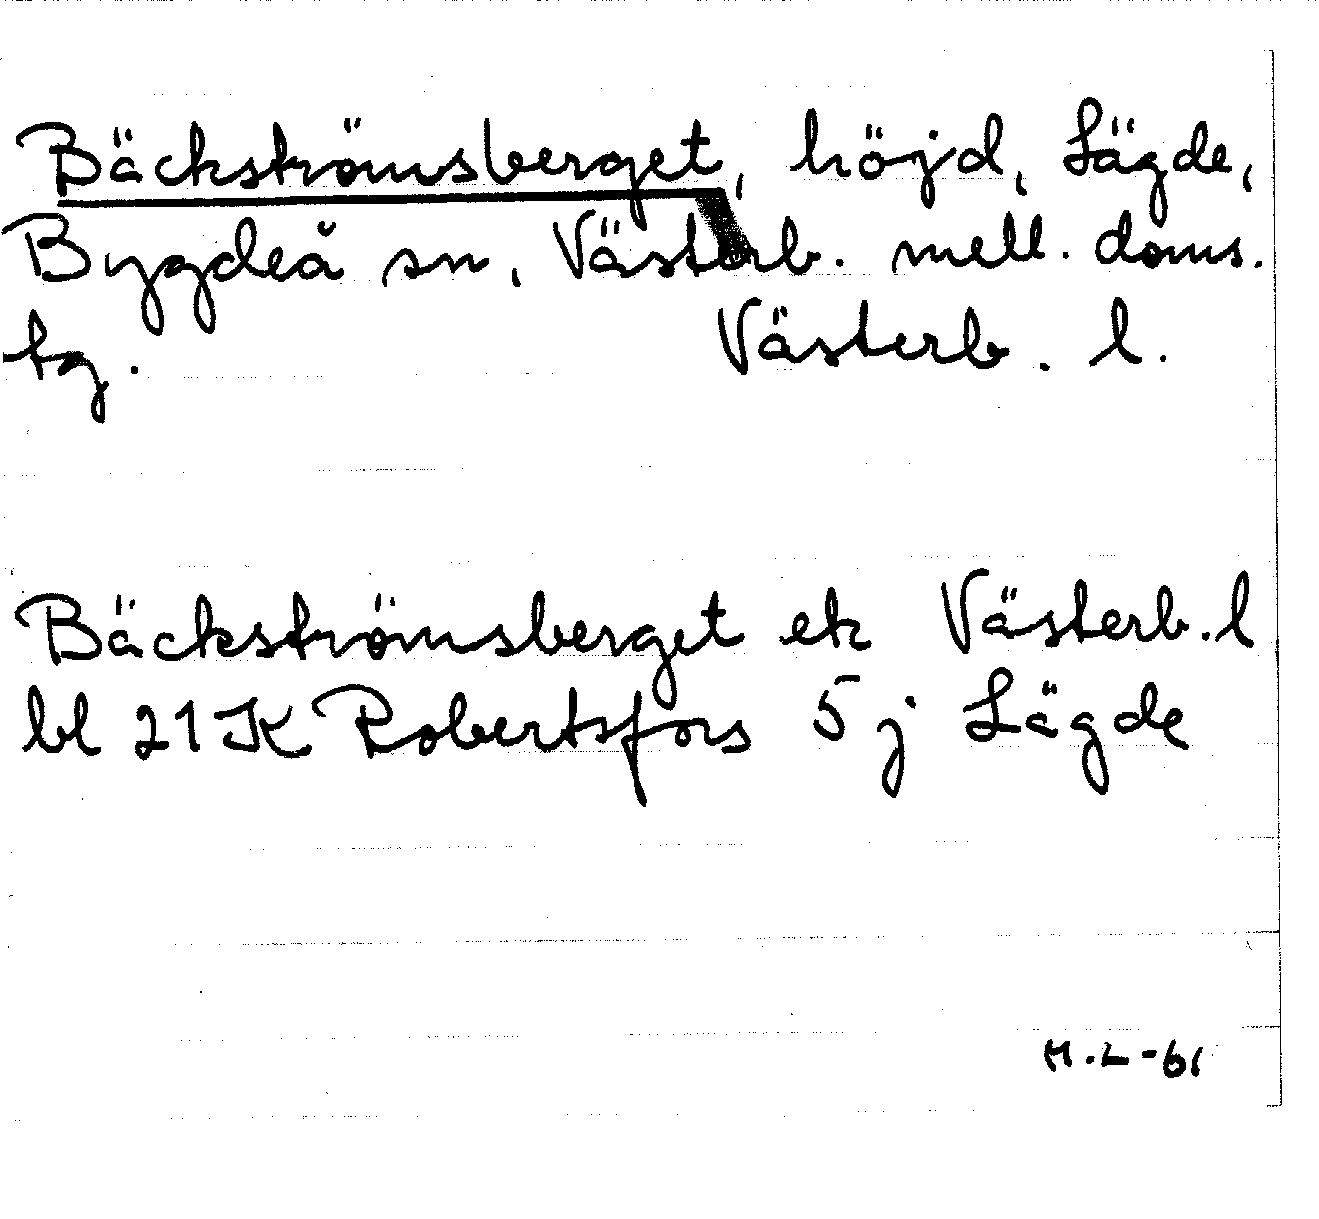 Bäckströmsberget, höjd, Lägde,
Bygdeå sn, Västerb. mell. doms.
tg. Västerb. l.
Bäckströmsberget ek Västerb. l
bl 21K Robertsfors 5 j Lägde
H.L-61